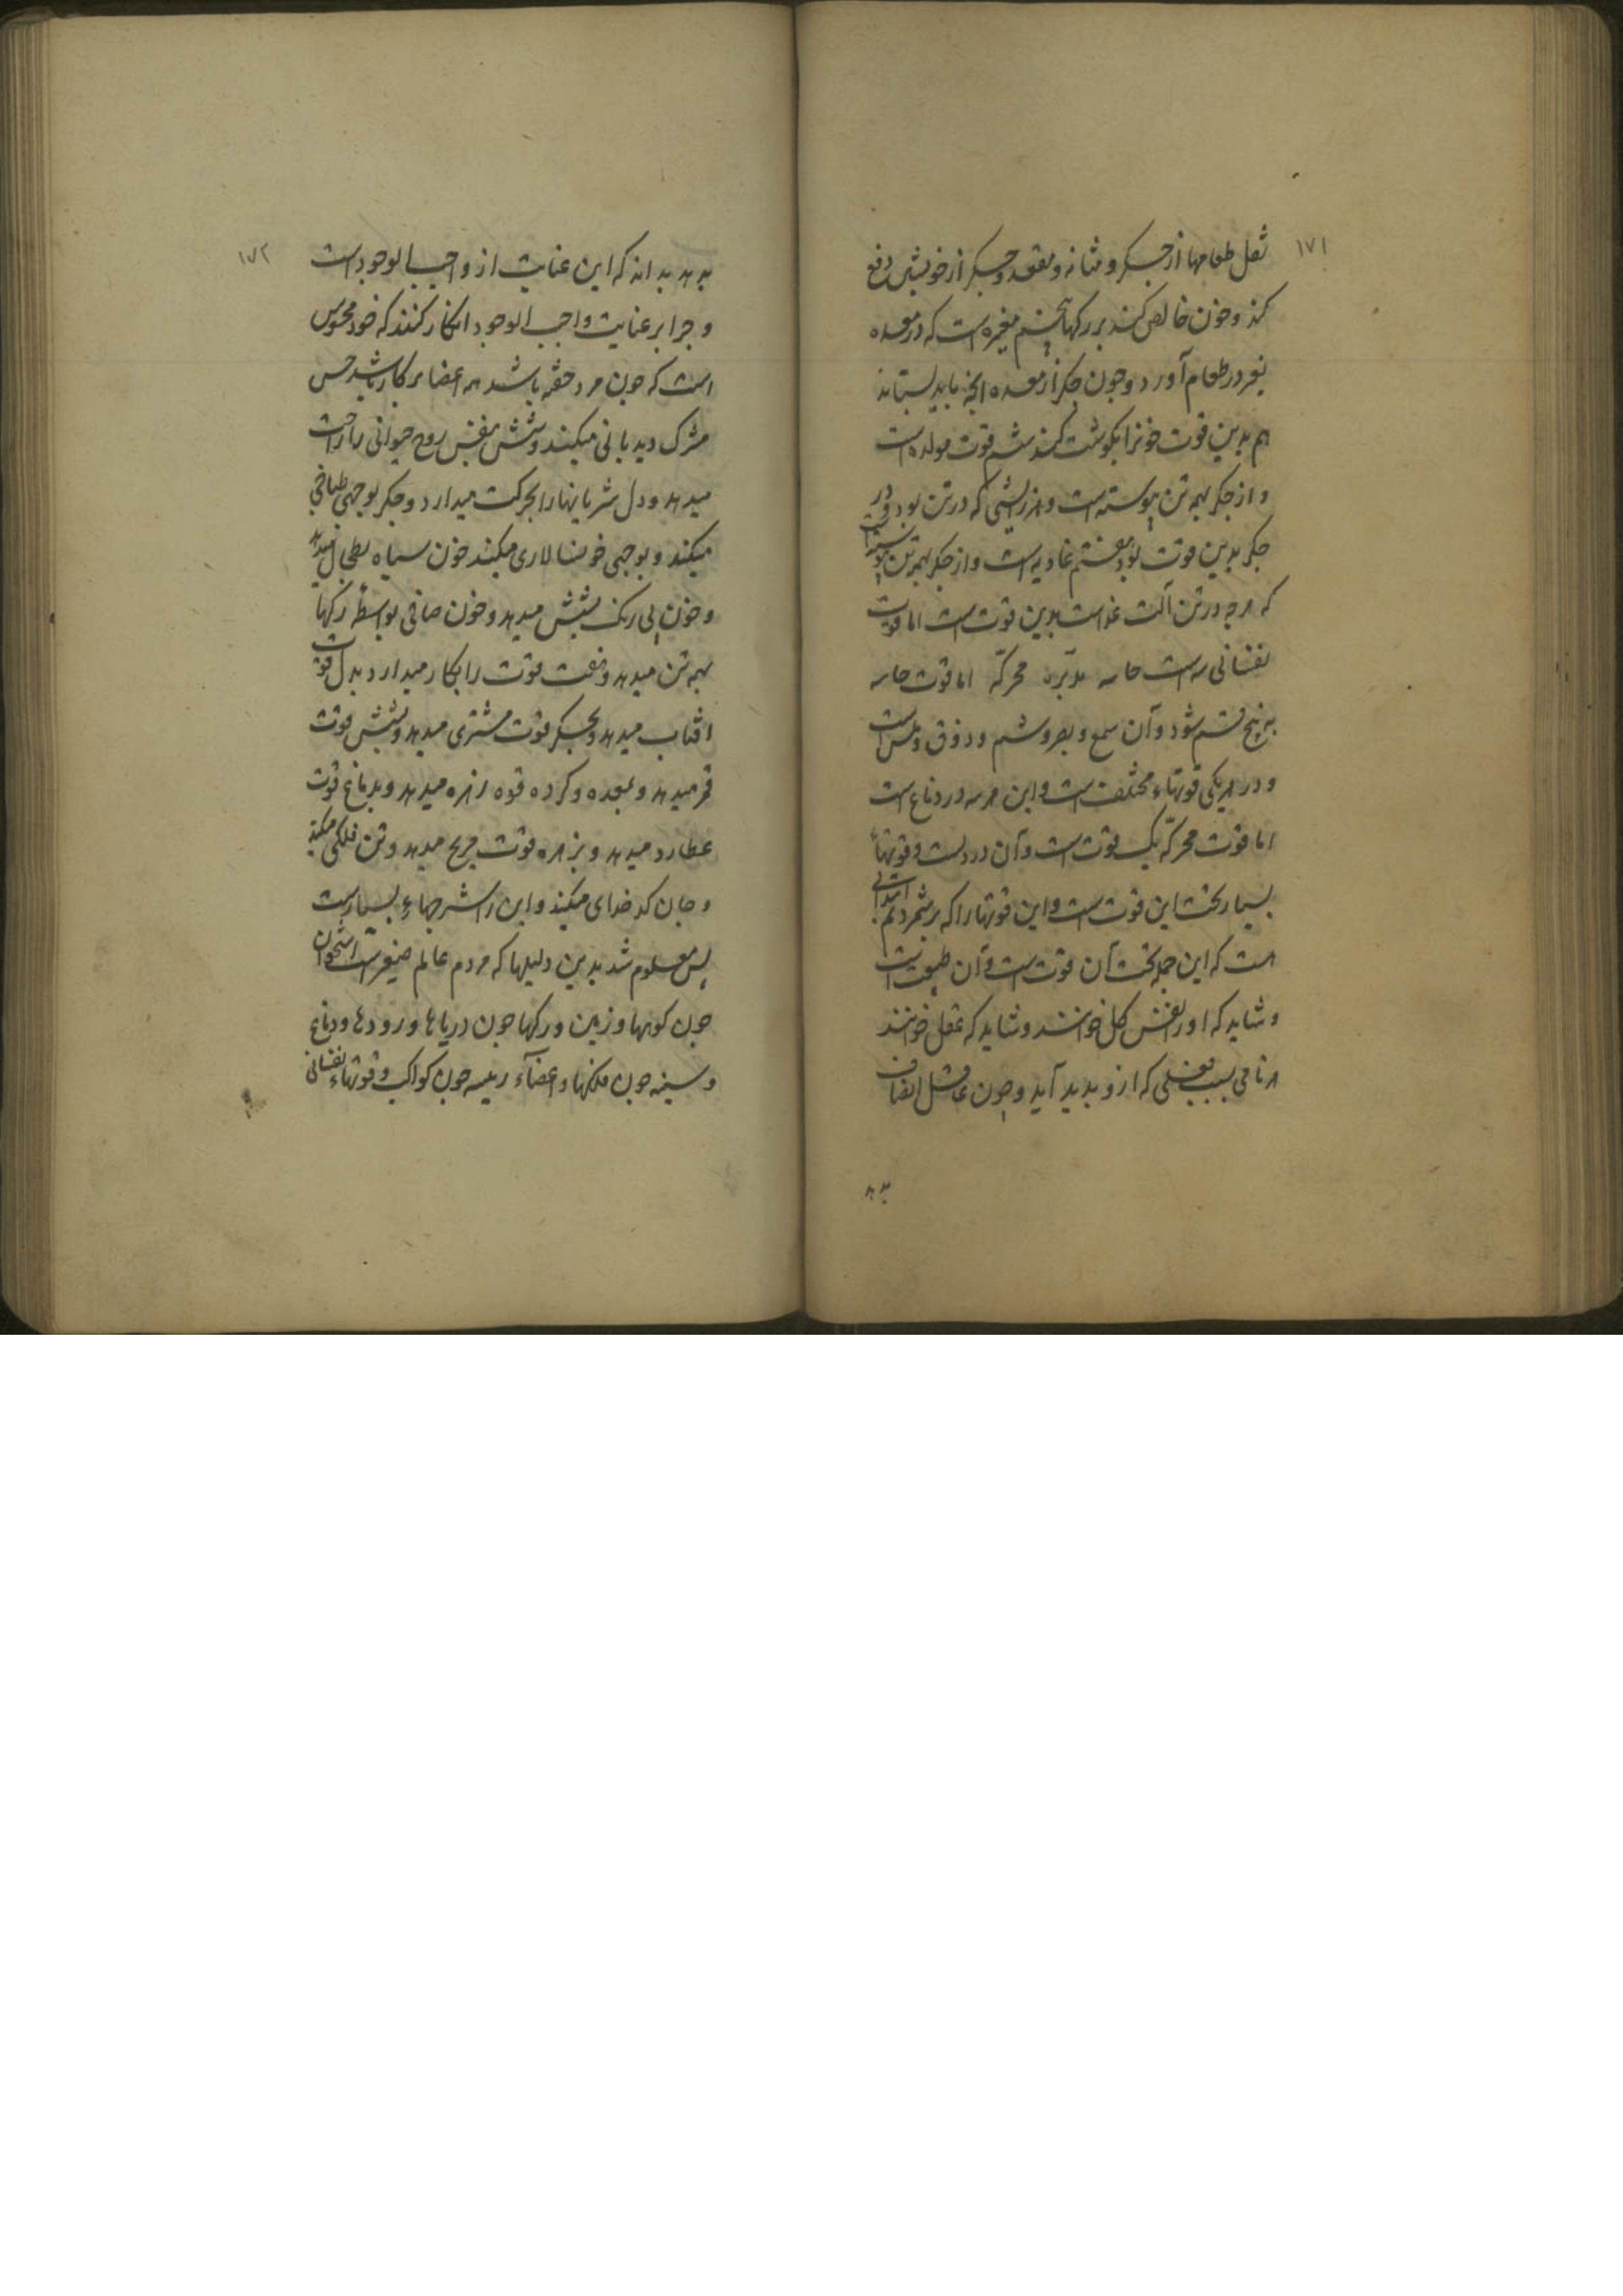 ١٧١
ثقل طعامها از جگر و مثانه و مقعد و جگر از خویشتن دفع
کند و خون خالص کند بر رکها پنجم مغیره است که در معده
تغیر در طعام آورد و چون جکر از معده انجه باید بستاند
هم بدین قوت خونرا بکوشت کند ششم قوت مولده است
و از جکر بهمه تن پیوسته است و هر زایشی که در تن بود و در
جکر بدین قوت بود هفتم غاذیه است و از جکر بهمه تن پیوسته است
که هرچه در تن آلت غذاست بدین قوت است اما قوت
نفسانی سه است حاسه مدبره محرکه اما قوت حاسه
به پنج قسم شود و آن سمع و بصر و شم و ذوق و لمس است
و در هر یکی قوتهاء مختلف است و این هر سه در دماغ است
اما قوت محرکه یک قوت است و آن در دلست و قوتهاء
بسیار تحت این قوت است و این قوتها را که برشمردیم
است که این جمله تحت آن قوت است و آن طبیعت است
و شاید که او را نفس کل خوانند و شاید که عقل خوانند
هر نامی بسبب فعلی که ازو بدید آید و چون عاقل انصاف
بدهد
١٧٢
بدهد بداند که این عنایت از واجب الوجود است
و چرا بر عنایت واجب الوجود انکار کنند که خود محسوس
است که چون مرد خفته باشد همه اعضا بر کار باشد حس
مشترک دیدبانی میکند و شش بنفس روح حیوانی را راحت
میدهد و دل شریانها را بحرکت میدارد و جکر بوجهی طباخی
میکند و بوجهی خوانسالاری میکند خون سیاه بطحال میدهد
و خون بی رنک بشش میدهد و خون صافی بواسطه رکها
بهمه تن میدهد و هفت قوت را بکار میدارد بدل قوت
افتاب میدهد و بجکر قوت مشتری میدهد و بشش قوت
قمر میدهد و بمعده و کرده قوه زهره میدهد و بدماغ قوت
عطارد میدهد و بزهره قوت مریخ میدهد و تن فلکی میکند
و جان کدخدای میکند و این را شرحهاء بسیارست
پس معلوم شد بدین دلیلها که مردم عالم صغیرست استخوان
چون کوهها و زمین و رکها چون دریاها و رودها و دماغ
و سینه چون فلکها و اعضاء رئیسه چون کواکب و قوتهاء نفسانی